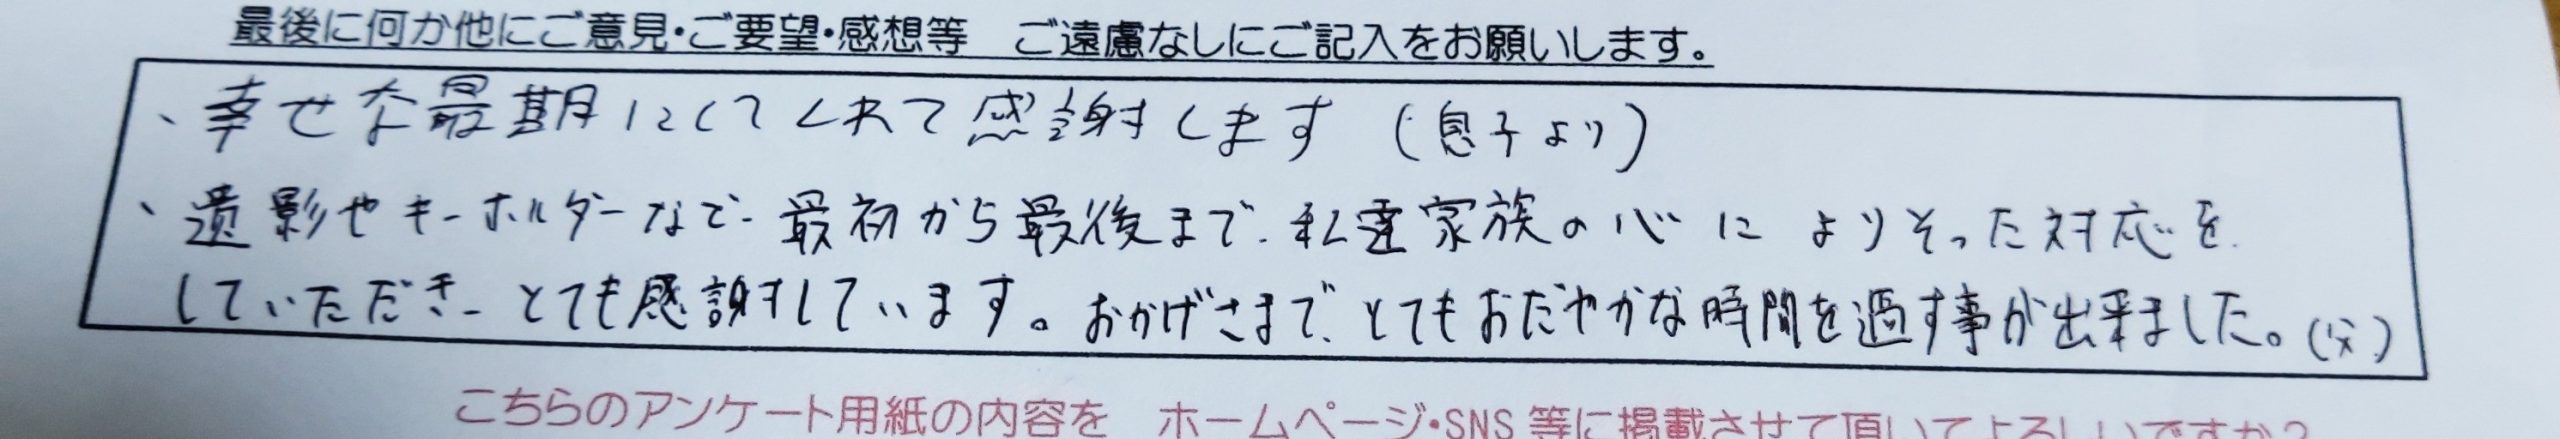 最後に何か他にご意見・ご要望・感想等　ご遠慮なしにご記入をお願いします。
、幸せな最期にしてくれて感謝します（息子より）
、遺影やキーホルダーなど、最初から最後まで、私達家族の心によりそった対応を
していただき、とても感謝しています。おかげさまで、とてもおだやかな時間を過す事が出来ました。（父）
こちらのアンケート用紙の内容を　ホームページ・SNS等に掲載させて頂いてよろしいですか？